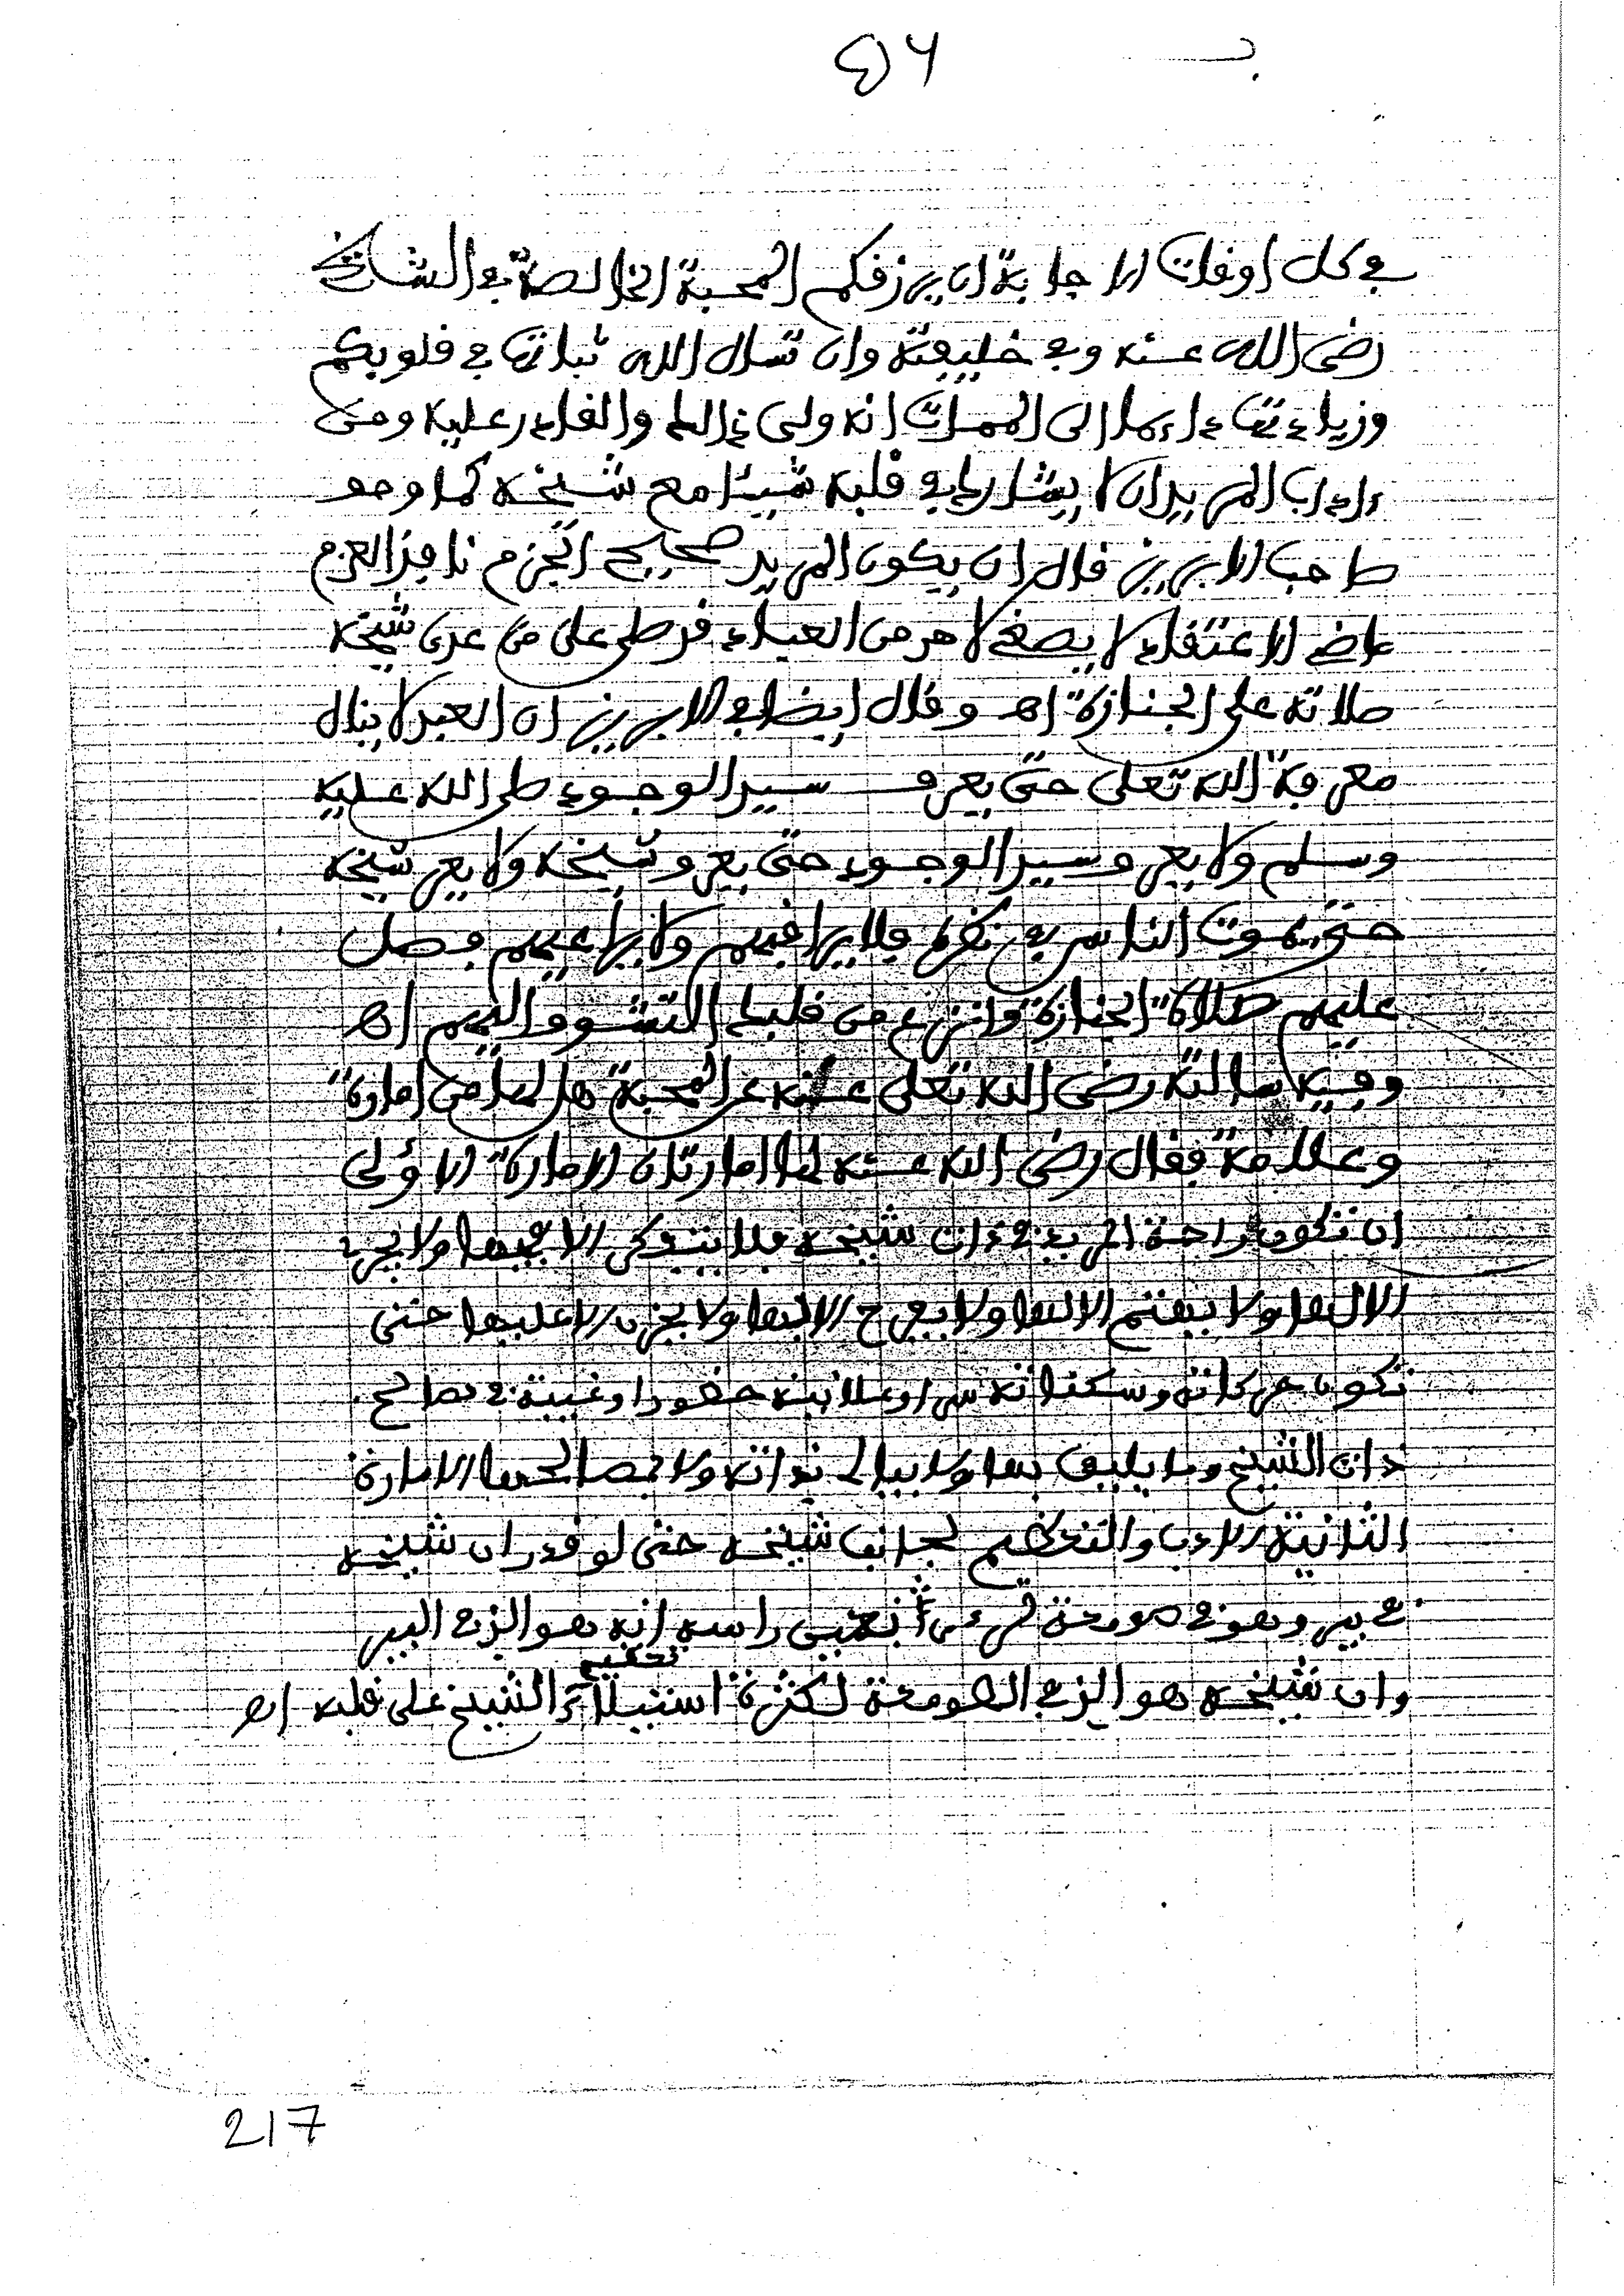 ٤٦
في كل اوقات الاجابة ان يرزقكم المحبة الخالصة في الشيخ
رضى الله عنه وفي خليفته وان تسال الله ثباتها في قلوبكم
وزيادتها دايما الى الممات انه ولى ذالك والقادر عليه ومن
داداب المريد ان لا يشارك في قلبه شيئا مع شيخه كما وصف
صاحب الابريز قال ان يكون المريد صحيح الجزم نافذ العزم
ماضى الاعتقاد لا يصغى لاحد من العباد قد صلى على من عدى شيخه
صلاته على الجنازة اهـ وقال ايضا في الابريز ان العبد لا ينال
معرفة الله تعلى حتى يعرف سيد الوجود صلى الله عليه
وسلم ولا يعرف سيد الوجود حتى يعرف شيخه ولا يعرف شيخه
حتى يموت الناس في نظره فلا يراقبهم ولا يراعيهم فصل
عليهم صلاة الجنازة وانزع من قلبك التشوف اليهم اهـ
وفيه سالته رضى الله تعلى عنه عن المحبة هل لها من امارة
وعلامة فقال رضى الله عنه لها امارتان الامارة الاولى
ان تكون راحة المريد في ذات شيخه فلا يتفكر الا فيها ولا يجرى
الا لها ولا يهتم الا لها ولا يفرح الا بها ولا يحزن الا عليها حتى
تكون حركاته وسكناته سرا وعلانية حضورا وغيبة في مصالح
ذات الشيخ وما يليق بها ولا يبالى بذاته ولا بمصالحها الامارة
الثانية الادب والتعظيم لجانب شيخه حتى لو قدر ان شيخه
في بير وهو في صومعة لرءى بعين راسه انه هو الذى في البير
وان شيخه هو الذى في الصومعة لكثرة استيلاء تعظيم الشيخ على قلبه اهـ
217